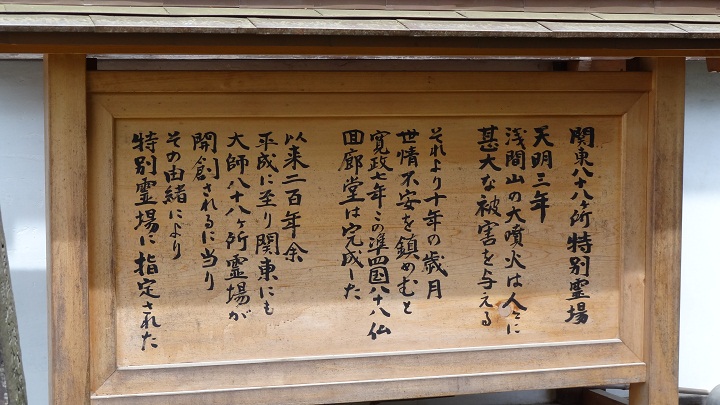 関東八十八ヶ所特別霊場
天明三年
浅間山の大噴火は人々に
甚大な被害を与える
それより十年の歳月
世情不安を鎮めむと
寛政七年この準四国八十八仏
回廊堂は完成した
以来二百年余
平成に至り関東にも
大師八十八ヶ所霊場が
開創されるに当り
その由緒により
特別霊場に指定された